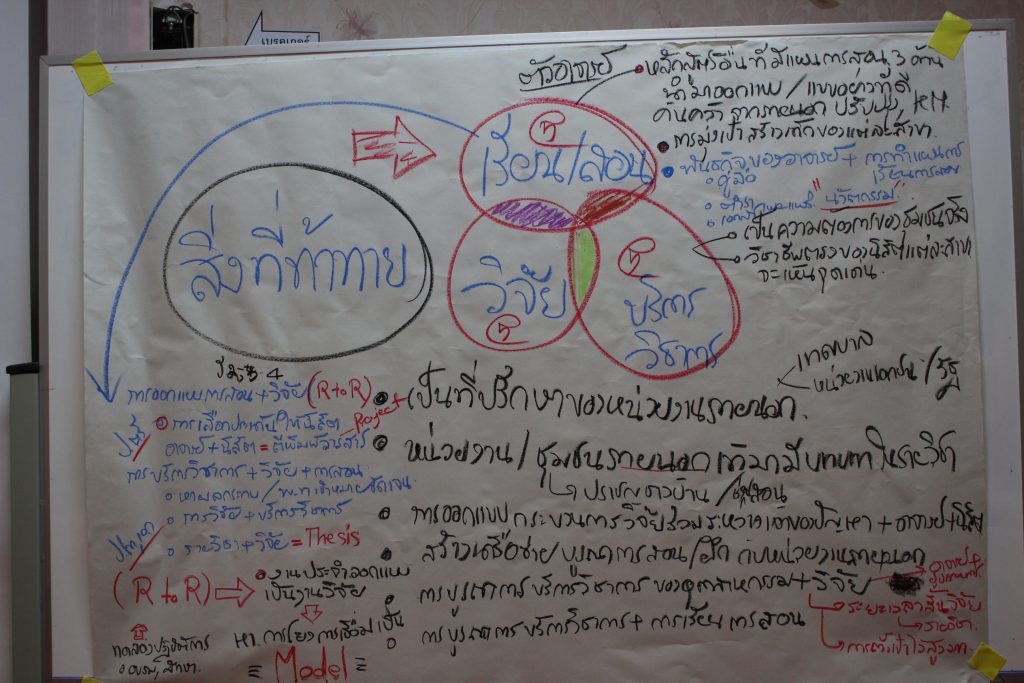 เบรคเกอร์
ตัวอาจารย์
หลักสูตรอื่นที่มีแผนการสอน 3 ด้าน
นำมาออกแบบ /
ปรับปรุง, KM
การมุ่งเป้า
ของแต่ละสาขา.
พันธกิจของอาจารย์ + การทำแผนการ
เรียนการสอน
คู่มือ
ตำรา
"นวัตกรรม"
เป็นความต้องการของชุมชนจริง
วิชาชีพตรงของนิสิตแต่ละสาขา
จะเห็นจุดเด่น.
เรียน/สอน
วิจัย
บริการ
วิชาการ
สิ่งที่ท้าทาย
เทศบาล
หน่วยงานเอกชน / รัฐ
เป็นที่ปรึกษาของหน่วยงานภายนอก.
หน่วยงาน / ชุมชนภายนอกเข้ามามีบทบาทในรายวิชา
ปราชญ์ชาวบ้าน /
การออกแบบกระบวนการวิจัยร่วมระหว่างเจ้าของปัญหา + อาจารย์ + นิสิต
สร้างเครือข่ายบูรณาการสอน/ฝึก กับหน่วยงานภายนอก
การบูรณาการ บริการวิชาการ ของอุตสาหกรรม + วิจัย
การบูรณาการ บริการวิชาการ + การเรียน การสอน
อาจารย์ +
ระยะเวลาสั้นวิจัย
รายวิชา.
ปี 3, 4
การออกแบบการสอน + วิจัย (R to R)
การเลือกประเด็นให้นิสิต
Project
อาจารย์ + นิสิต = ตีพิมพ์วารสาร
การบริการวิชาการ + วิจัย + การสอน
หาผลกระทบ /
การวิจัย + บริการวิชาการ
รายวิชา + วิจัย = Thesis
(R to R)
งานประจำออกแบบ
เป็นงานวิจัย
หา. การโยงการเชื่อมเป็น
= Model =
ทดลองปฏิบัติการ
อบรม, ศึกษา.